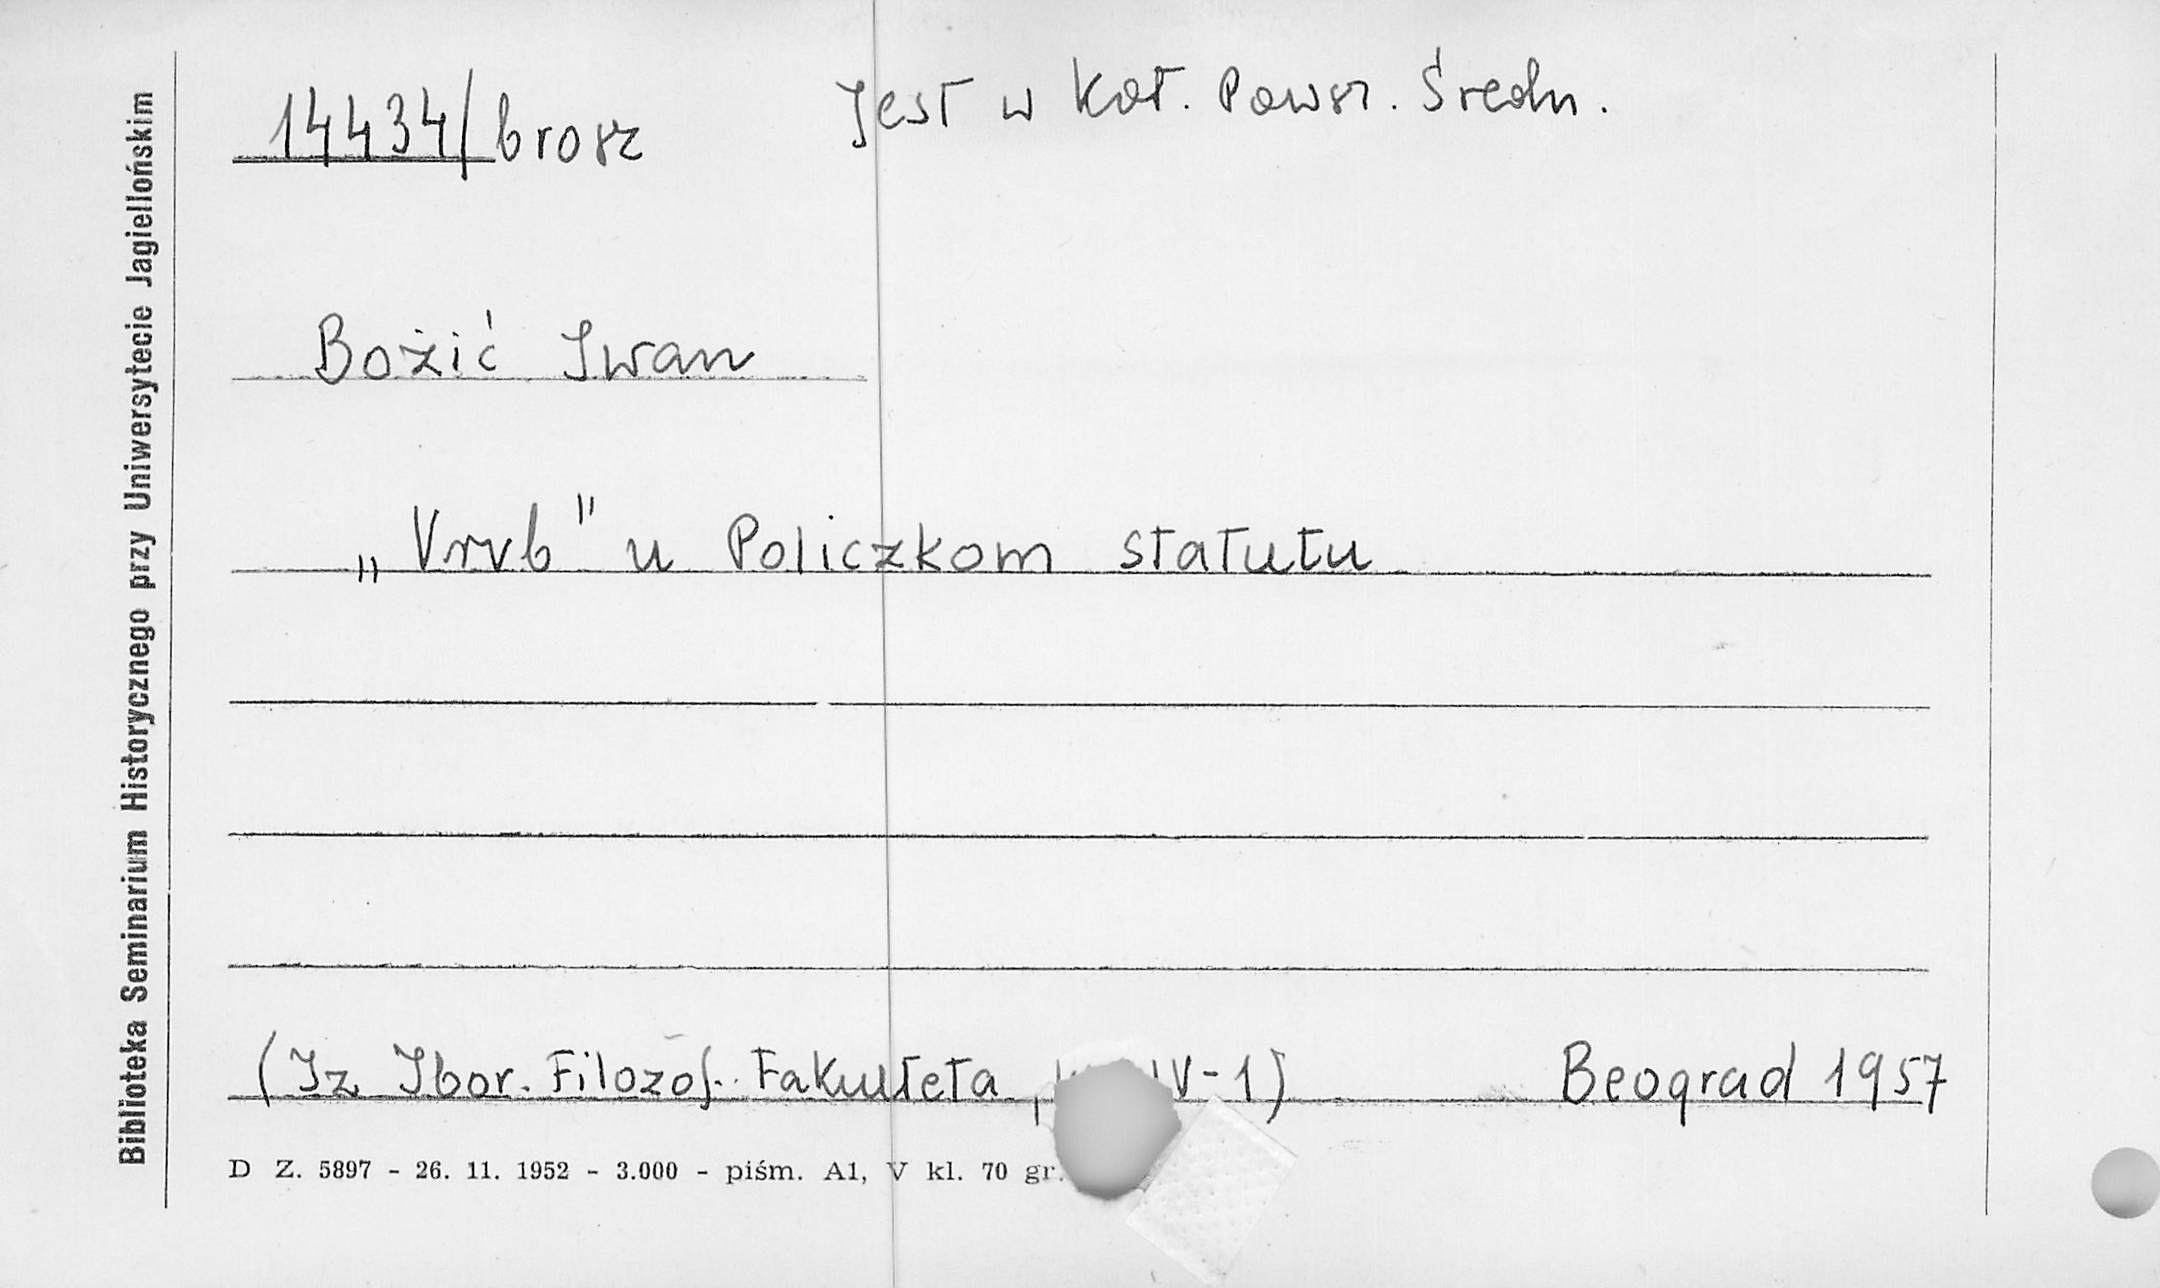 14434/brosz
Jest w Kat. Powsz. Średn.
Božić Iwan
„Vrvb" u Policzkom statutu
(Iz Zbor. Filozof. Fakulteta, IV-1)
Beograd 1957
D Z. 5897 - 26. 11. 1952 - 3.000 - piśm. A1, V kl. 70 gr.
Biblioteka Seminarium Historycznego przy Uniwersytecie Jagiellońskim